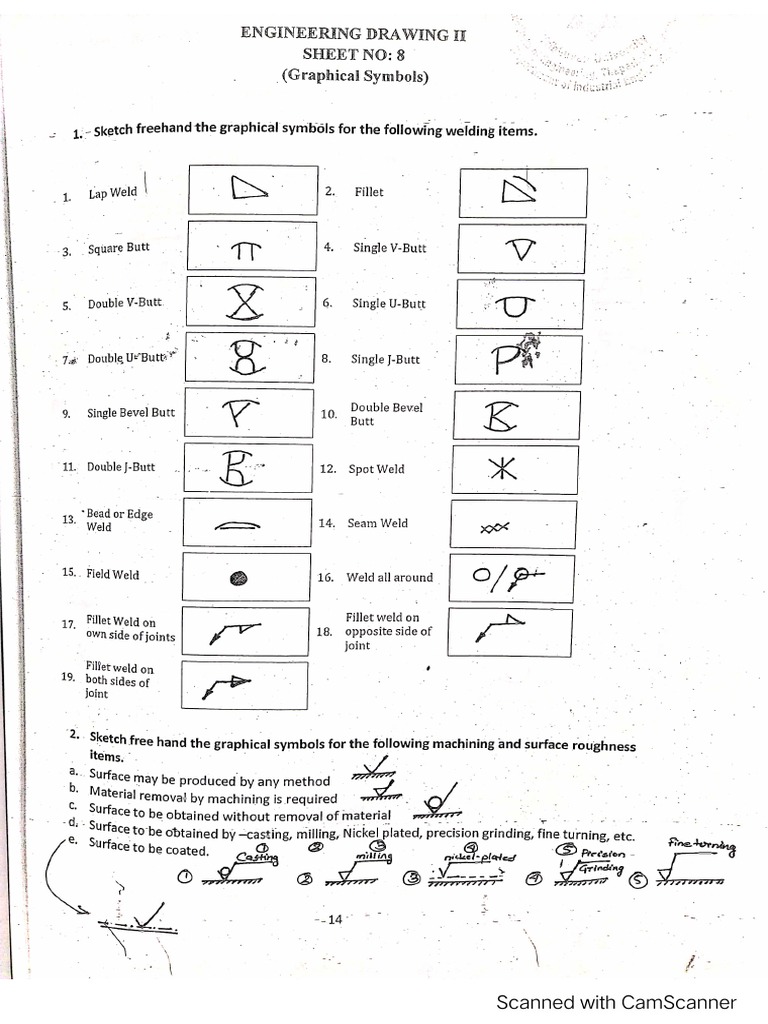 ENGINEERING DRAWING II
SHEET NO: 8
(Graphical Symbols)
1. Sketch freehand the graphical symbols for the following welding items.
1. Lap Weld 2. Fillet
3. Square Butt 4. Single V-Butt
5. Double V-Butt 6. Single U-Butt
7. Double U-Butt 8. Single J-Butt
9. Single Bevel Butt 10. Double Bevel Butt
11. Double J-Butt 12. Spot Weld
13. Bead or Edge Weld 14. Seam Weld
15. Field Weld 16. Weld all around
17. Fillet Weld on own side of joints 18. Fillet weld on opposite side of joint
19. Fillet weld on both sides of joint
2. Sketch free hand the graphical symbols for the following machining and surface roughness
items.
a. Surface may be produced by any method
b. Material removal by machining is required
c. Surface to be obtained without removal of material
d. Surface to be obtained by –casting, milling, Nickel plated, precision grinding, fine turning, etc.
e. Surface to be coated.
① ② ③ ④
① Casting ② milling ③ nickel-plated ④ ⑤ Precision Grinding ⑤ Fine turning
14
Scanned with CamScanner